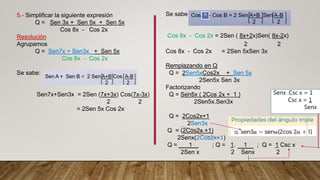 5.- Simplificar la siguiente expresión
Q = Sen 3x + Sen 5x + Sen 5x
Cos 8x - Cos 2x
Resolución
Agrupamos
Q = Sen7x + Sen3x + Sen 5x
Cos 8x - Cos 2x
Se sabe:
Sen A + Sen B = 2 Sen A+B Cos A-B
2 2
Sen7x+Sen3x = 2Sen (7x+3x) Cos(7x-3x)
2 2
= 2Sen 5x Cos 2x
Se sabe
Cos A - Cos B = 2 Sen A+B Sen A-B
2 2
Cos 8x - Cos 2x = 2Sen ( 8x+2x)Sen( 8x-2x)
2 2
Cos 8x - Cos 2x = 2Sen 5xSen 3x
Remplazando en Q
Q = 2Sen5xCos2x + Sen 5x
2Sen5x Sen 3x
Factorizando
Q = Sen5x ( 2Cos 2x + 1 )
2Sen5x.Sen3x
Q = 2Cos2x+1
2Sen3x
Q = (2Cos2x +1)
2Senx(2Cos2x+1)
Q = 1 ; Q = 1 . 1 ; Q = 1 Csc x
2Sen x 2 Senx 2
Senx .Csc x = 1
Csc x = 1
Senx
Propiedades del ángulo triple